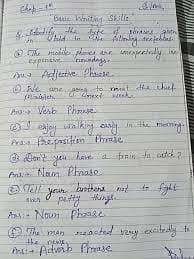 Chap-1st
Basic Writing Skills
Q. Identify the type of phrases given
in the following sentences.
① The mobile phones are unexpectedly
expensive nowadays.
Ans:- Adjective Phrase
② We are going to meet the chief
minister next week.
Ans:- Verb Phrase
③ I enjoy walking early the morning.
Ans:- Preposition Phrase
④ Don't you have a train to catch?
Ans:- Noun Phrase
⑤ Tell your brothers not to fight
over petty things.
Ans:- Noun Phrase
⑥ The man reacted very excitedly to
the news.
Ans:- Adverb Phrase